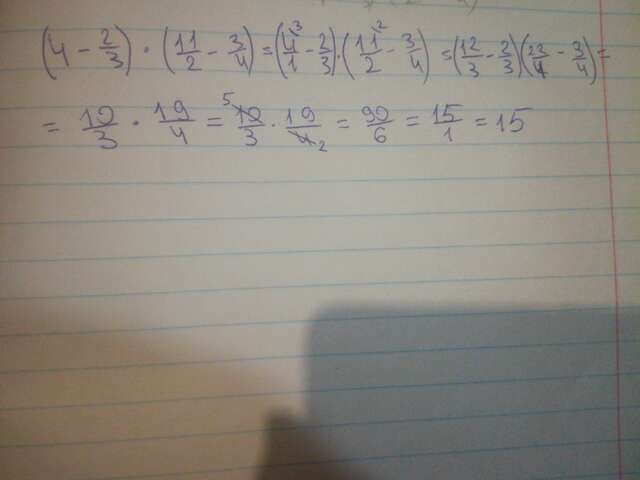 (4 - 2/3) · (11/2 - 3/4) = (4/1 ³ - 2/3) · (11/2 ² - 3/4) = (12/3 - 2/3)(22/4 - 3/4) =
= 10/3 · 19/4 = ⁵10/3 · 19/4₂ = 90/6 = 15/1 = 15